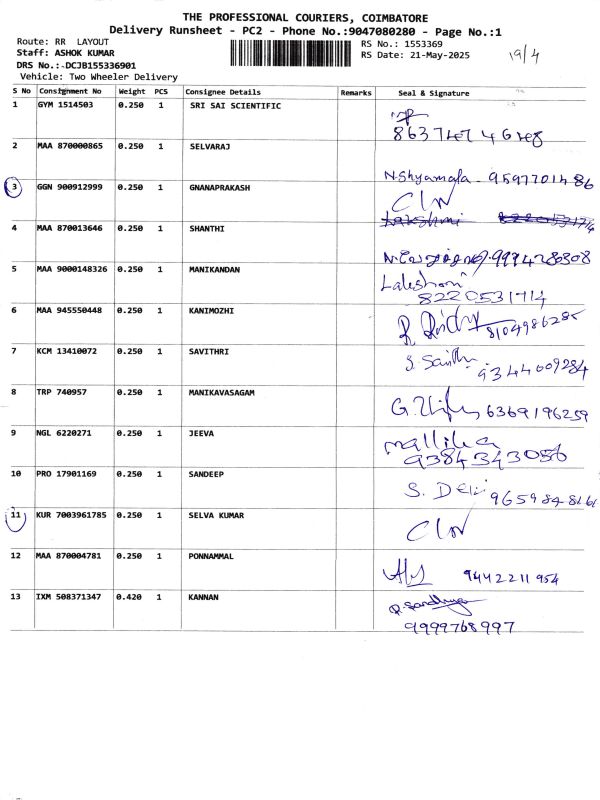 THE PROFESSIONAL COURIERS, COIMBATORE
Delivery Runsheet - PC2 - Phone No.:9047080280 - Page No.:1
Route: RR LAYOUT
RS No.: 1553369
Staff: ASHOK KUMAR
RS Date: 21-May-2025
19/4
DRS No.:-DCJB155336901
Vehicle: Two Wheeler Delivery
S No Consignment No Weight PCS Consignee Details Remarks Seal & Signature
1 GYM 1514503 0.250 1 SRI SAI SCIENTIFIC
2 MAA 870000865 0.250 1 SELVARAJ
N.Shyamala - 9597701486
3 GGN 900912999 0.250 1 GNANAPRAKASH
Lakshmi
4 MAA 870013646 0.250 1 SHANTHI
9994286308
5 MAA 9000148326 0.250 1 MANIKANDAN
8220531714
6 MAA 945550448 0.250 1 KANIMOZHI
8104986285
7 KCM 13410072 0.250 1 SAVITHRI
9344009284
8 TRP 740957 0.250 1 MANIKAVASAGAM
6369196259
9 NGL 6220271 0.250 1 JEEVA
mallika
9384343056
10 PRO 17901169 0.250 1 SANDEEP
11 KUR 7003961785 0.250 1 SELVA KUMAR
12 MAA 870004781 0.250 1 PONNAMMAL
9442211954
13 IXM 508371347 0.420 1 KANNAN
P. Sandhya
9999768997